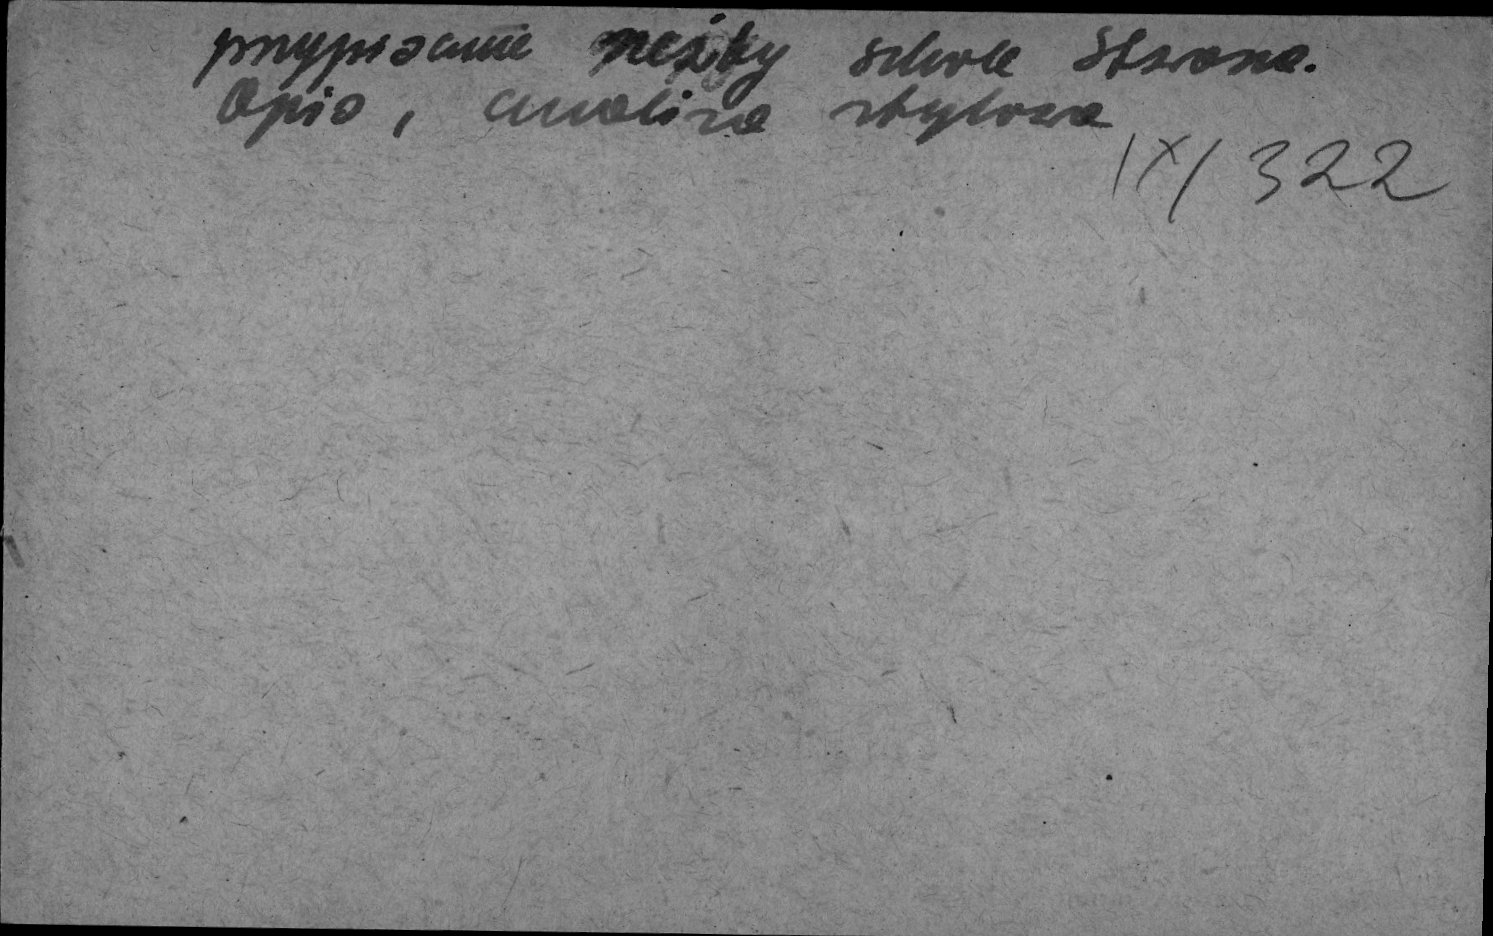 przypisanie rzeźby szkole Stwosza.
Opis, analiza stylowa
IX/322